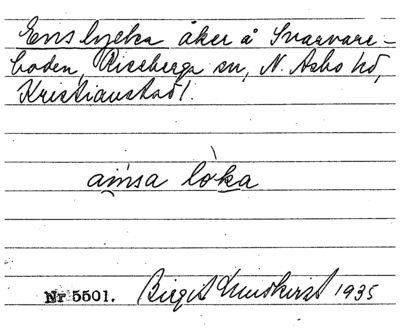 Ens lycka åker å Svarvare-
boden, Riseberga sn, N. Åsbo hd,
Kristianstad l.
ainsa loka
Nr 5501. Birgit Lundkvist 1935